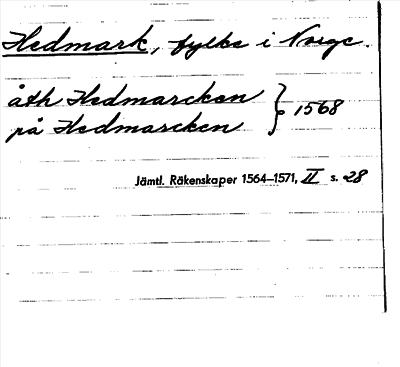 Hedmark, fylke i Norge.
åth Hedmarcken } 1568
på Hedmarcken
Jämtl. Räkenskaper 1564–1571, II s. 28